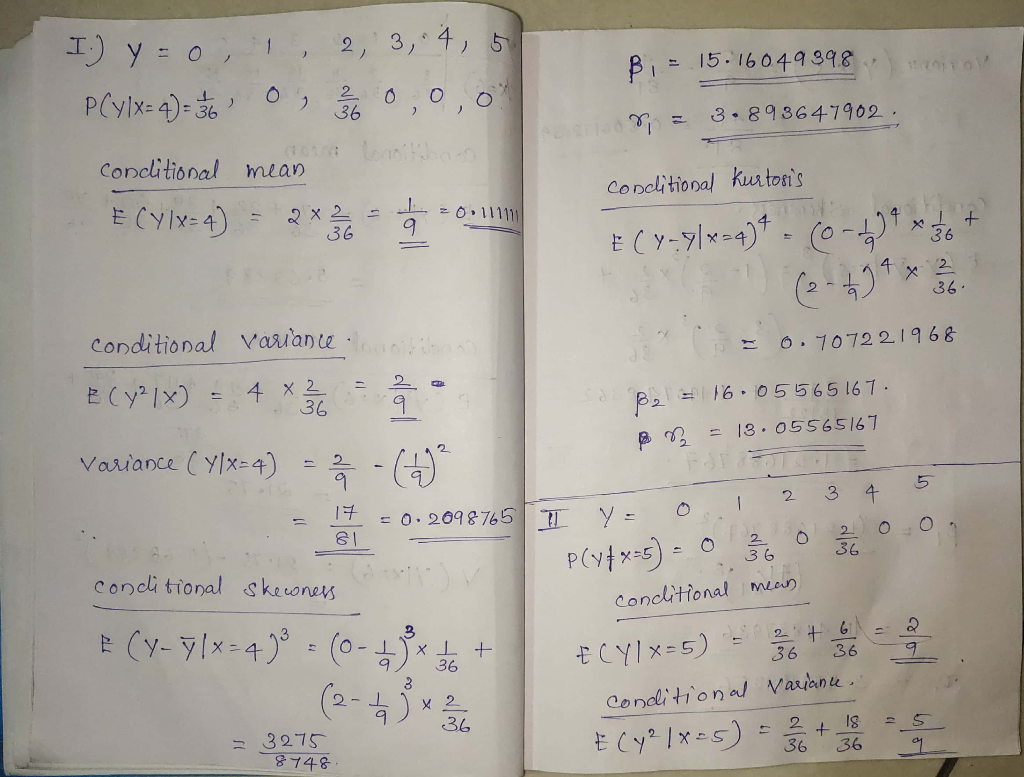 I.) Y = 0 , 1 , 2, 3, 4, 5
P(Y|X=4) = 1/36 , 0 , 2/36 0 , 0 , 0
Conditional mean
E(Y|X=4) = 2 × 2/36 = 1/9 = 0.111111
Conditional variance.
E(Y²|X) = 4 × 2/36 = 2/9
Variance (Y|X=4) = 2/9 - (1/9)²
= 17/81 = 0.2098765
Conditional Skewness
E(Y-ȳ|X=4)³ = (0-1/9)³ × 1/36 +
(2-1/9)³ × 2/36
= 3275/8748.
β₁ = 15.16049398
γ₁ = 3.893647902.
Conditional Kurtosis
E(Y-ȳ|X=4)⁴ = (0-1/9)⁴ × 1/36 +
(2-1/9)⁴ × 2/36.
= 0.707221968
β₂ = 16.05565167.
γ₂ = 13.05565167
II Y = 0 1 2 3 4 5
P(Y|X=5) = 0 2/36 0 2/36 0 0
Conditional mean
E(Y|X=5) = 2/36 + 6/36 = 2/9
Conditional Variance.
E(Y²|X=5) = 2/36 + 18/36 = 5/9